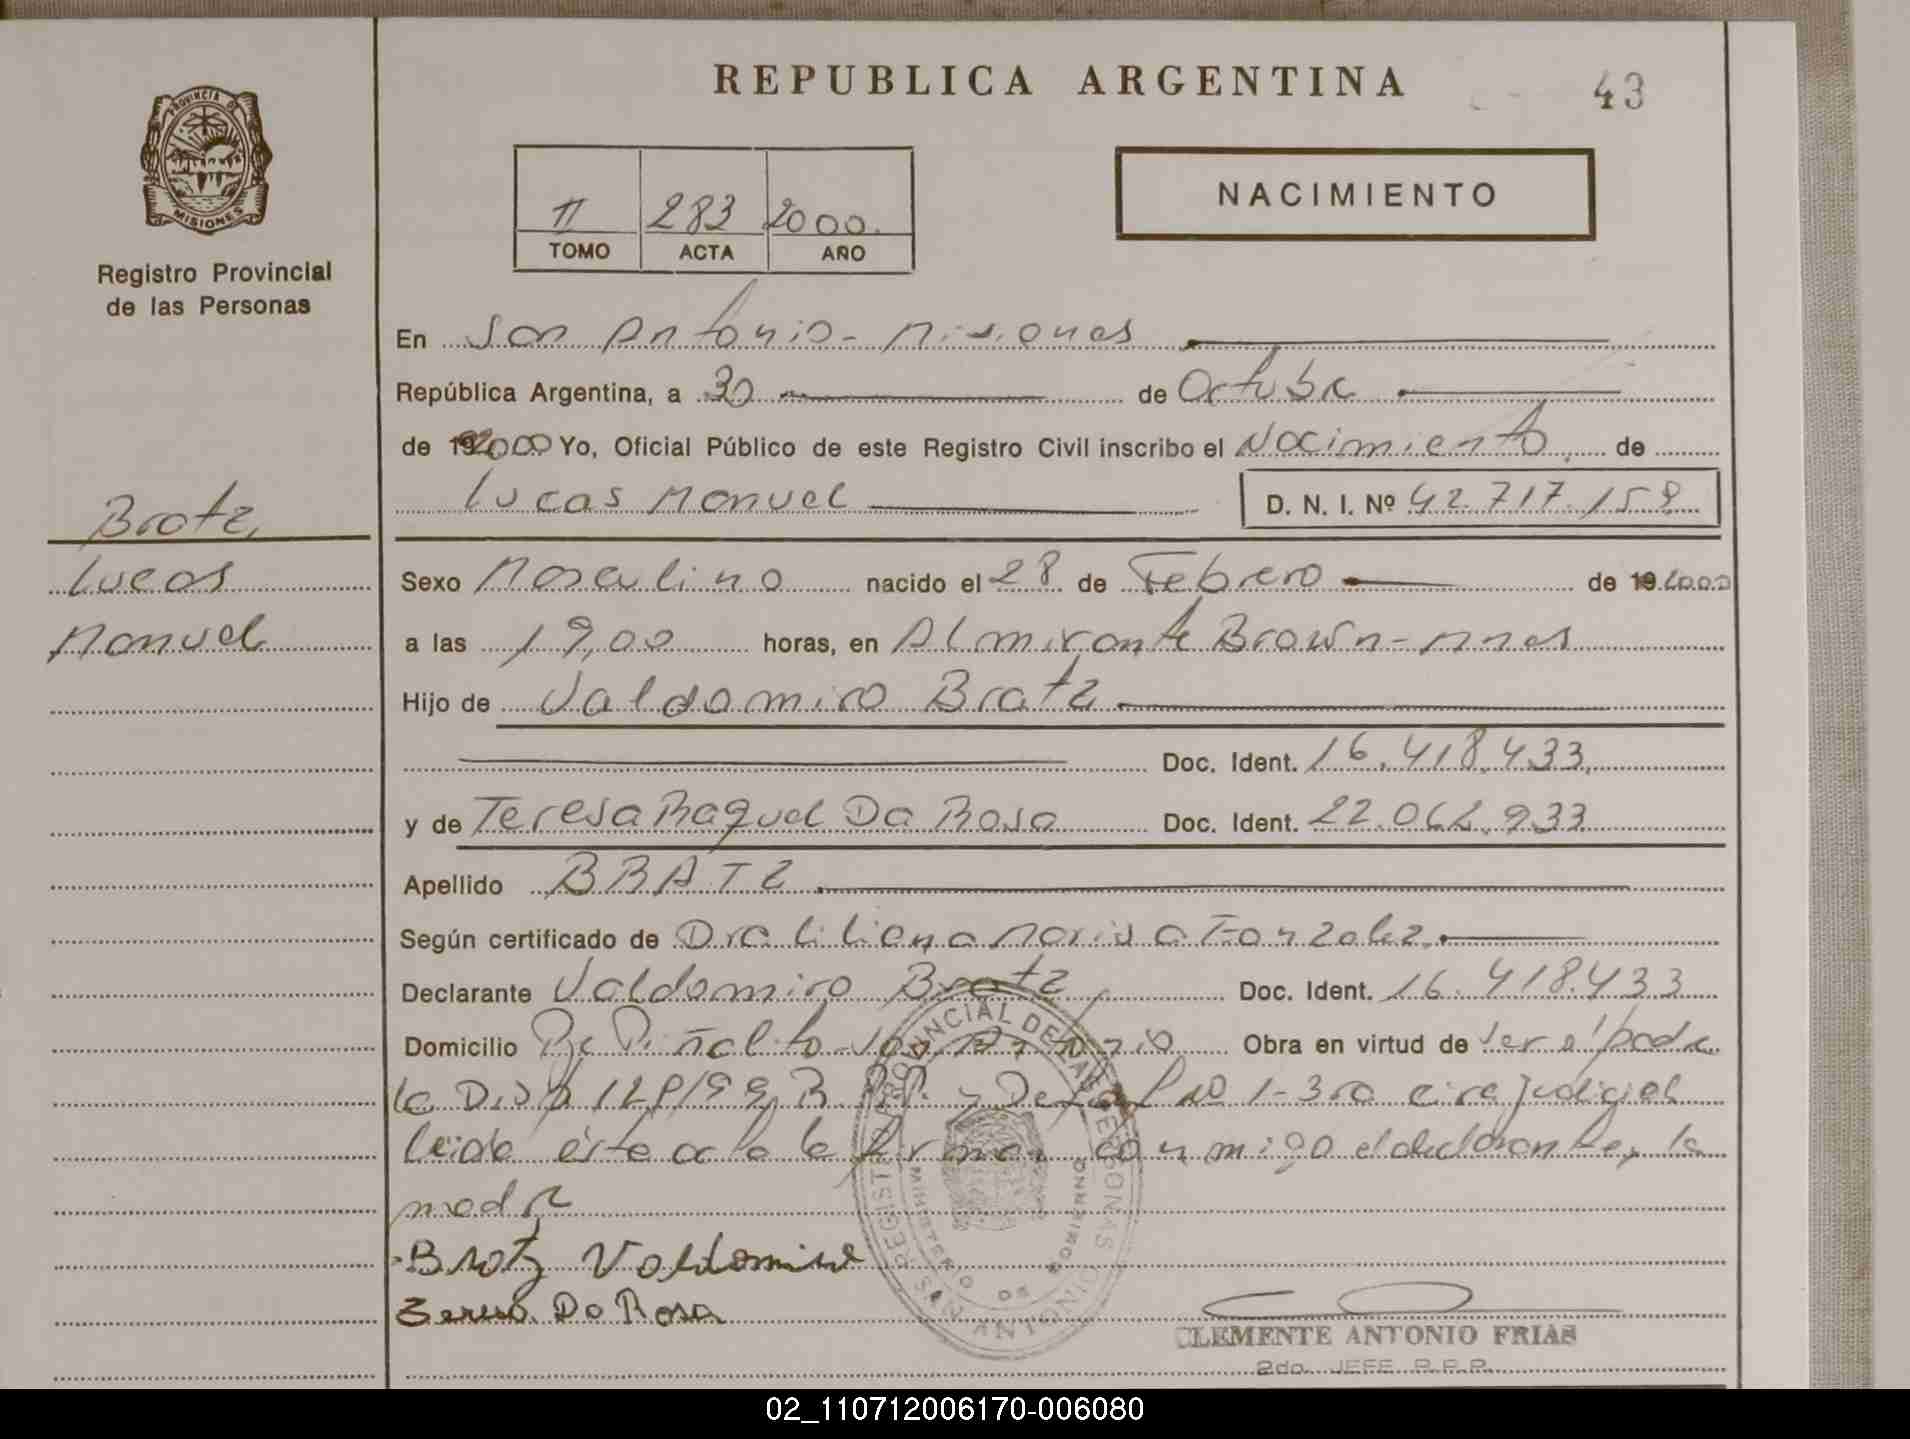 REPUBLICA ARGENTINA
43
PROVINCIA DE
MISIONES
Registro Provincial
de las Personas
II 283 2000.
TOMO ACTA AÑO
NACIMIENTO
En San Antonio - Misiones
República Argentina, a 30 de Octubre
de 192000 Yo, Oficial Público de este Registro Civil inscribo el Nacimiento de
Lucas Manuel D. N. I. Nº 42.717.158
Bratz,
Lucas
Manuel
Sexo Masculino nacido el 28 de Febrero de 19 2000
a las 19,00 horas, en Almirante Brown - Mnes
Hijo de Valdomiro Bratz
Doc. Ident. 16.418.433
y de Teresa Raquel Da Rosa Doc. Ident. 22.062.933
Apellido BRATZ
Según certificado de Dra Liliana Marisa
Declarante Valdomiro Bratz Doc. Ident. 16.418.433
Domicilio Piñalito - San Antonio Obra en virtud de
la y 1 - 3ra circ judicial
leida ésta acta la firman conmigo el declarante y la
madre
Bratz Valdomiro
Teresa Da Rosa
REGISTRO PROVINCIAL DE LAS PERSONAS
MINISTERIO DE GOBIERNO
SAN ANTONIO
CLEMENTE ANTONIO FRIAS
2do. JEFE R.P.P.
02_110712006170-006080